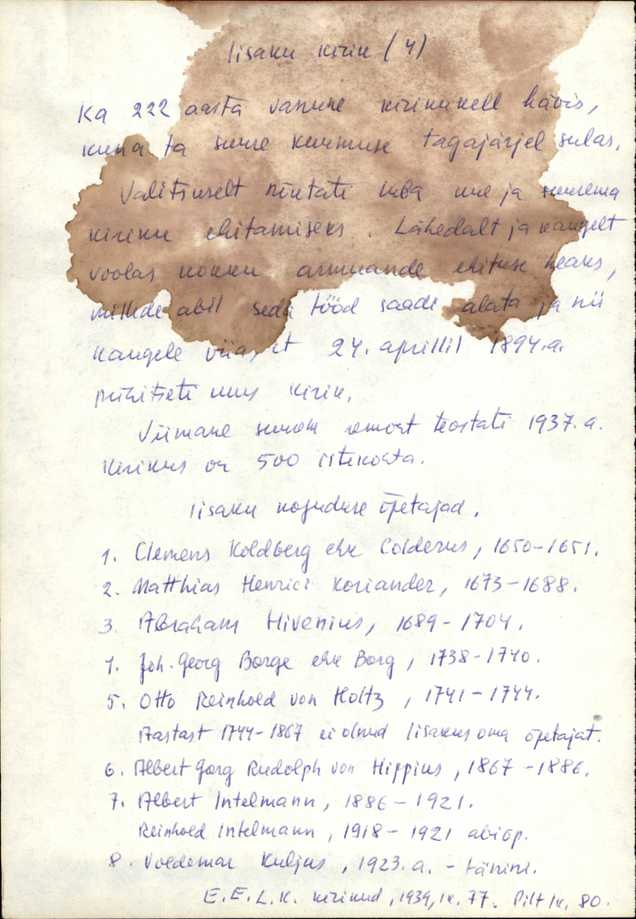 Iisaku kirik (4)
Ka 222 aasta vanune kirikukell hävis,
kuna ta suure kuumuse tagajärjel sulas.
Valitsuselt nõutati luba uue ja suurema
kiriku ehitamiseks. Lahedalt ja kangelt
voolas kokku armuande ehituse heaks,
millede abil seda tööd saadi alata ja nii
kaugele viia, et 24. aprillil 1894.a.
pühitseti uus kirik.
Viimane suurem remont teostati 1937. a.
Kirikus on 500 istekohta.
Iisaku koguduse õpetajad.
1. Clemens Koldberg ehk Colderus, 1650-1651.
2. Matthias Henrici Koriander, 1673-1688.
3. Abraham Hivenius, 1689-1704.
4. Joh. Georg Borge ehk Borg, 1738-1740.
5. Otto Reinhold von Holtz, 1741-1744.
Aastast 1744-1867 ei olnud Iisakus oma õpetajat.
6. Albert Georg Rudolph von Hippius, 1867-1886.
7. Albert Intelmann, 1886-1921.
Reinhold Intelmann, 1918-1921 abiõp.
8. Voldemar Kuljus, 1923.a. - tänini.
E.E.L.K. kirikud, 1939, lk. 77. Pilt lk. 80.